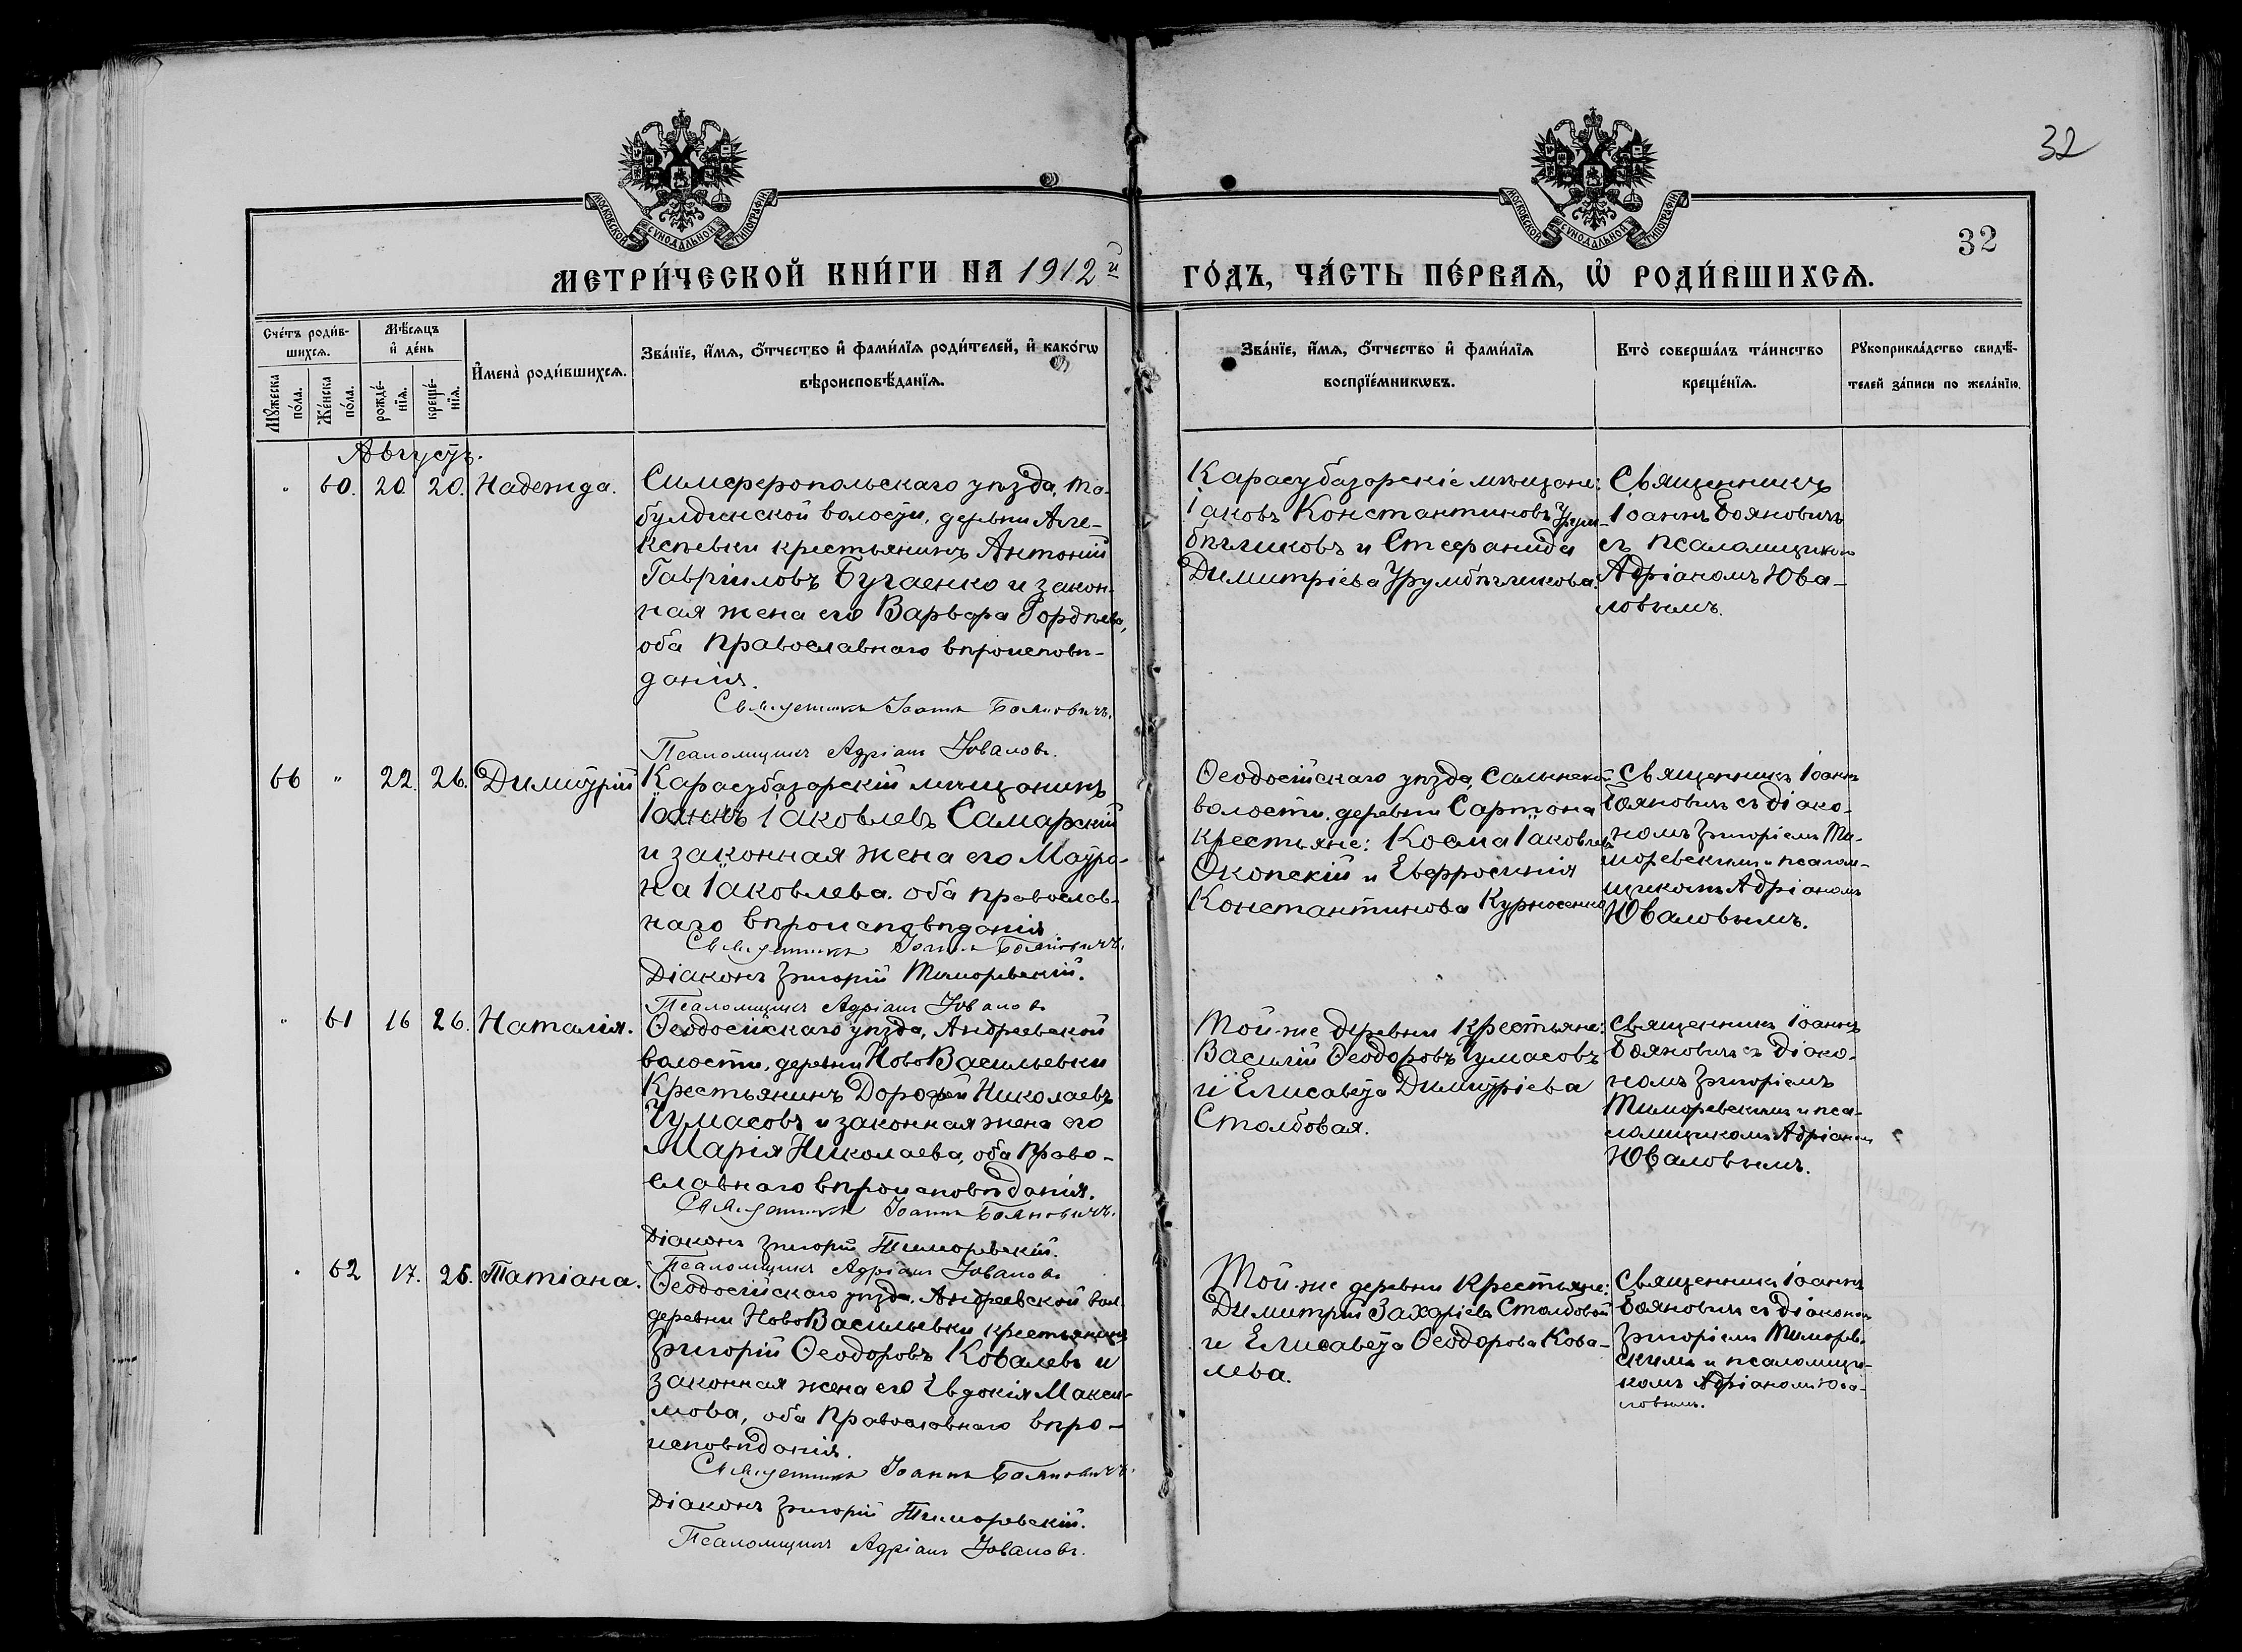 32
МОСКОВСКОЙ СѴНОДАЛЬНОЙ ТИПОГРАФІИ
МОСКОВСКОЙ СѴНОДАЛЬНОЙ ТИПОГРАФІИ
32
МЕТРИ́ЧЕСКОЙ КНИ́ГИ НА 1912й ГО́ДЪ, ЧА́СТЬ ПЕ́РВАѦ, Ѡ҆ РОДИ́ВШИХСѦ.
Сче́тъ роди́в-
шихсѧ.
Мꙋ́жеска по́ла.
Же́нска по́ла.
Мѣ́сѧцъ
и҆ де́нь
рожде́-
нїѧ.
креще́-
нїѧ.
И҆мена̀ роди́вшихсѧ.
Зва́нїе, и҆́мѧ, ѻ҆́тчество и҆ фами́лїѧ роди́телей, и҆ како́гѡ
вѣроисповѣ́данїѧ.
Зва́нїе, и҆́мѧ, ѻ҆́тчество и҆ фами́лїѧ
воспрїе́мникѡвъ.
Кто̀ соверша́лъ та́инство
креще́нїѧ.
Рꙋкоприкла́дство свидѣ́-
телей за́писи по жела́нїю.
Августъ.
" 60. 20. 20. Надежда.
Симферопольскаго уѣзда, Та-
булдинской волости, деревни Але-
ксѣевки крестьянинъ Антоній
Гавріиловъ Бугаенко и закон-
ная жена его Варвара Гордѣева,
оба православнаго вѣроисповѣ-
данія.
Священникъ Іоаннъ Бояновичъ.
Псаломщикъ Адріанъ Юваловъ.
Карасубазорскіе мѣщане:
Іаковъ Константиновъ Урум-
бѣгликовъ и Стефанида
Димитріева Урумбѣгликова.
Священникъ
Іоаннъ Бояновичъ
съ псаломщикомъ
Адріаномъ Юва-
ловымъ.
66 " 22. 26. Димитрій
Карасубазорскій мѣщанинъ
Іоаннъ Іаковлевъ Самарскій
и законная жена его Матро-
на Іаковлева, оба православ-
наго вѣроисповѣданія
Священникъ Іоаннъ Бояновичъ.
Діаконъ Григорій Тиморевскій.
Псаломщикъ Адріанъ Юваловъ
Ѳеодосійскаго уѣзда, Салынской
волости, деревни Сартана
крестьяне: Косма Іаковлевъ
Окопскій и Евфросинія
Константинова Курносенко
Священникъ Іоаннъ
Бояновичъ съ діако-
номъ Григоріемъ Ти-
моревскимъ и псалом-
щикомъ Адріаномъ
Юваловымъ.
" 61 16 26. Наталія.
Ѳеодосійскаго уѣзда, Андреевской
волости, деревни НовоВасильевки
крестьянинъ Дорофей Николаевъ
Чумасовъ и законная жена его
Марія Николаева, оба право-
славнаго вѣроисповѣданія.
Священникъ Іоаннъ Бояновичъ.
Діаконъ Григорій Тиморевскій.
Псаломщикъ Адріанъ Юваловъ
Той-же деревни крестьяне:
Василій Ѳеодоровъ Чумасовъ
и Елисавета Димитріева
Столбовая.
Священникъ Іоаннъ
Бояновичъ съ діако-
номъ Григоріемъ
Тиморевскимъ и пса-
ломщикомъ Адріаномъ
Юваловымъ.
" 62 17. 26. Татіана.
Ѳеодосійскаго уѣзда, Андреевской вол.
деревни НовоВасильевки крестьянинъ
Григорій Ѳеодоровъ Ковалевъ и
законная жена его Евдокія Макси-
мова, оба православнаго вѣро-
исповѣданія.
Священникъ Іоаннъ Бояновичъ.
Діаконъ Григорій Тиморевскій.
Псаломщикъ Адріанъ Юваловъ.
Той-же деревни крестьяне:
Димитрій Захаріевъ Столбовой
и Елисавета Ѳеодорова Кова-
лева.
Священникъ Іоаннъ
Бояновичъ съ діакономъ
Григоріемъ Тиморев-
скимъ и псаломщи-
комъ Адріаномъ Юва-
ловымъ.